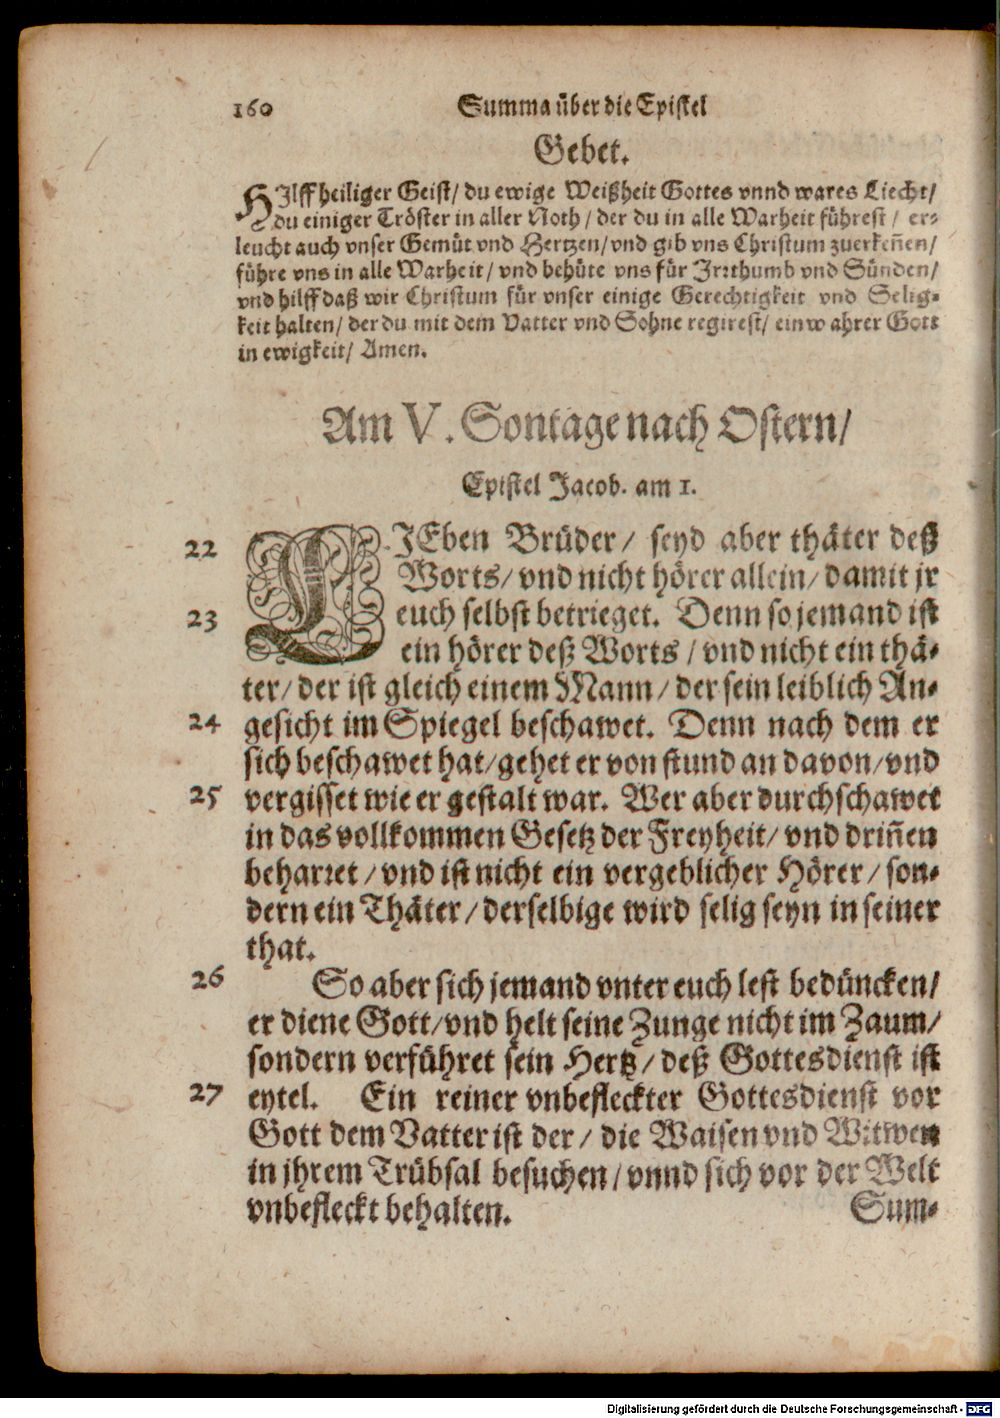 160 Summa über die Epistel
Gebet.
HIlff heiliger Geist/ du ewige Weißheit Gottes vnnd wares Liecht/
du einiger Tröster in aller Noth/ der du in alle Warheit führest/ er-
leucht auch vnser Gemüt vnd Hertzen/ vnd gib vns Christum zuerkeñen/
führe vns in alle Warheit/ vnd behüte vns für Irrthumb vnd Sünden/
vnd hilff daß wir Christum für vnser einige Gerechtigkeit vnd Selig-
keit halten/ der du mit dem Vatter vnd Sohne regirest/ ein wahrer Gott
in ewigkeit/ Amen.
Am V. Sontage nach Ostern/
Epistel Jacob. am 1.
22 LIEben Brüder/ seyd aber thäter deß
Worts/ vnd nicht hörer allein/ damit jr
23 euch selbst betrieget. Denn so jemand ist
ein hörer deß Worts/ vnd nicht ein thä-
ter/ der ist gleich einem Mann/ der sein leiblich An-
24 gesicht im Spiegel beschawet. Denn nach dem er
sich beschawet hat/ gehet er von stund an davon/ vnd
25 vergisset wie er gestalt war. Wer aber durchschawet
in das vollkommen Gesetz der Freyheit/ vnd driñen
beharret/ vnd ist nicht ein vergeblicher Hörer/ son-
dern ein Thäter/ derselbige wird selig seyn in seiner
that.
26 So aber sich jemand vnter euch lest bedüncken/
er diene Gott/ vnd helt seine Zunge nicht im Zaum/
sondern verführet sein Hertz/ deß Gottesdienst ist
27 eytel. Ein reiner vnbefleckter Gottesdienst vor
Gott dem Vatter ist der/ die Waisen vnd Witwen
in jhrem Trübsal besuchen/ vnnd sich vor der Welt
vnbefleckt behalten. Sum-
Digitalisierung gefördert durch die Deutsche Forschungsgemeinschaft - DFG